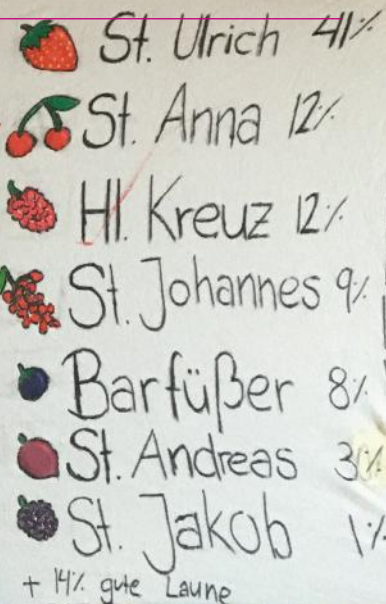 St. Ulrich 41%
St. Anna 12%
Hl. Kreuz 12%
St. Johannes 9%
Barfüßer 8%
St. Andreas
St. Jakob 1%
+ 14% gute Laune